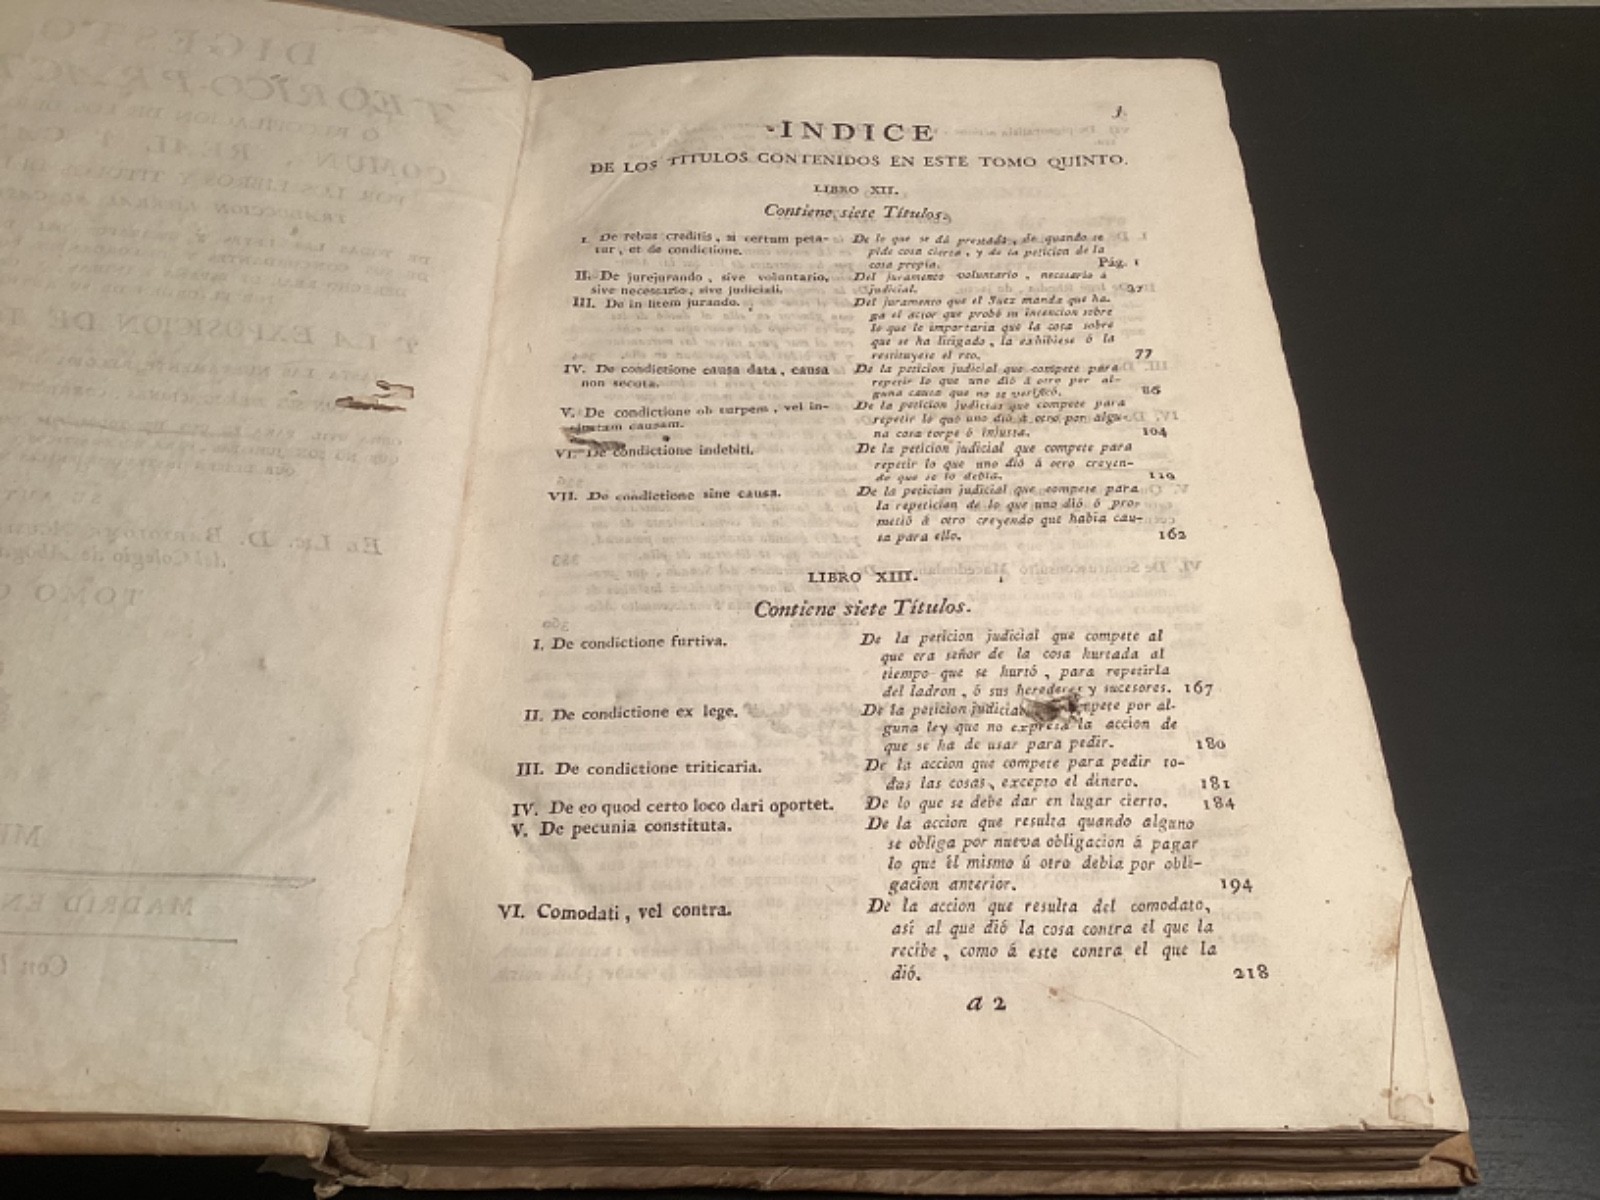 INDICE
DE LOS TITULOS CONTENIDOS EN ESTE TOMO QUINTO.
LIBRO XII.
Contiene siete Títulos.
I. De rebus creditis, si certum peta-
tur, et de condictione.
De lo que se dá prestado, de quando se
pide cosa cierta, y de la peticion de la
cosa propia. Pág. 1
II. De jurejurando, sive voluntario,
sive necessario, sive judiciali.
Del juramento voluntario, necesario ó
judicial.
III. De in litem jurando.
Del juramento que el Juez manda que ha-
ga el actor que probó su intencion sobre
lo que le importaria que la cosa sobre
que se ha litigado, la exhibiese ó la
restituyese el reo. 77
IV. De condictione causa data, causa
non secuta.
De la peticion judicial que compete para
repetir lo que uno dió á otro por al-
guna causa que no se verificó. 86
V. De condictione ob turpem, vel in-
justam causam.
De la peticion judicial que compete para
repetir lo que uno dió á otro por algu-
na cosa torpe ó injusta. 104
VI. De condictione indebiti.
De la peticion judicial que compete para
repetir lo que uno dió á otro creyen-
do que se lo debia. 119
VII. De condictione sine causa.
De la petician judicial que compete para
la repetician de lo que uno dió ó pro-
metió á otro creyendo que habia cau-
sa para ello. 162
LIBRO XIII.
Contiene siete Títulos.
I. De condictione furtiva.
De la peticion judicial que compete al
que era señor de la cosa hurtada al
tiempo que se hurtó, para repetirla
del ladron, ó sus herederos y sucesores. 167
II. De condictione ex lege.
De la peticion judicial compete por al-
guna ley que no expresa la accion de
que se ha de usar para pedir. 180
III. De condictione triticaria.
De la accion que compete para pedir to-
das las cosas, excepto el dinero. 181
IV. De eo quod certo loco dari oportet.
De lo que se debe dar en lugar cierto. 184
V. De pecunia constituta.
De la accion que resulta quando alguno
se obliga por nueva obligacion á pagar
lo que él mismo ú otro debia por obli-
gacion anterior. 194
VI. Comodati, vel contra.
De la accion que resulta del comodato,
así al que dió la cosa contra el que la
recibe, como á este contra el que la
dió. 218
a 2